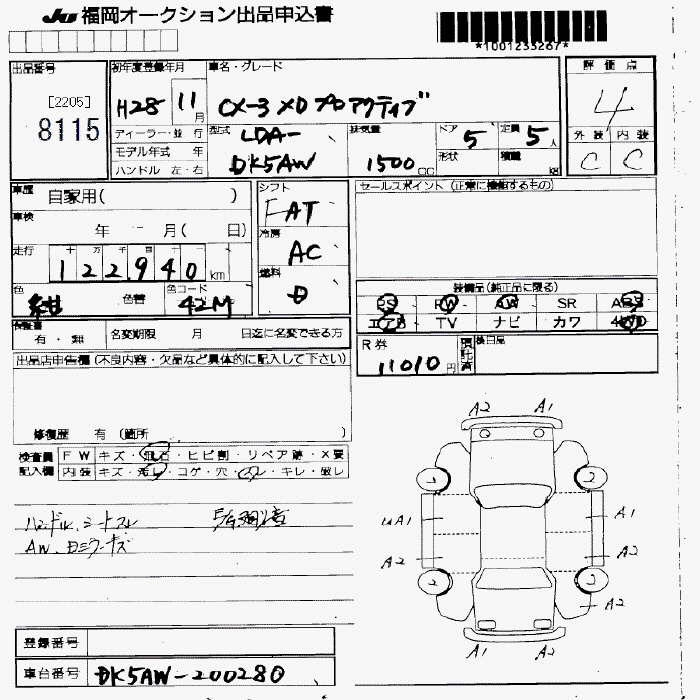 JU 福岡オークション出品申込書
*1001233267*
出品番号 初年度登録年月 車名・グレード 評価点
[2205]
8115
H28 11月 CX-3 XD プロアクティブ 4
ディーラー・並行 型式 LDA- 排気量 ドア 5 定員 5人 外装 内装
モデル年式 年 DK5AW 1500cc 形状 積載 kg C C
ハンドル 左・右
車歴 自家用( ) シフト FAT セールスポイント (正常に機能するもの)
車検 年 月( 日) 冷房 AC
走行 十 万 千 百 十
122,940 km 燃料 D
色 紺 色替 色コード 42M 装備品(純正品に限る)
PS PW AW SR ABS
エアB TV ナビ カワ 4WD
保証書 有・無 名変期限 月 日迄に名変できる方
R券 11010円 預託済 後日品
出品店申告欄 (不良内容・欠品など具体的に記入して下さい)
修復歴 有 (箇所 )
検査員 FW キズ・飛石・ヒビ割・リペア跡・X要
記入欄 内装 キズ・汚レ・コゲ・穴・スレ・キレ・破レ
ハンドル、シートスレ
AW、ミラーキズ
A2 A1
2 2
A1 A1
A2 A2
2 2
A2
A1 A2
登録番号
車台番号 DK5AW-200280